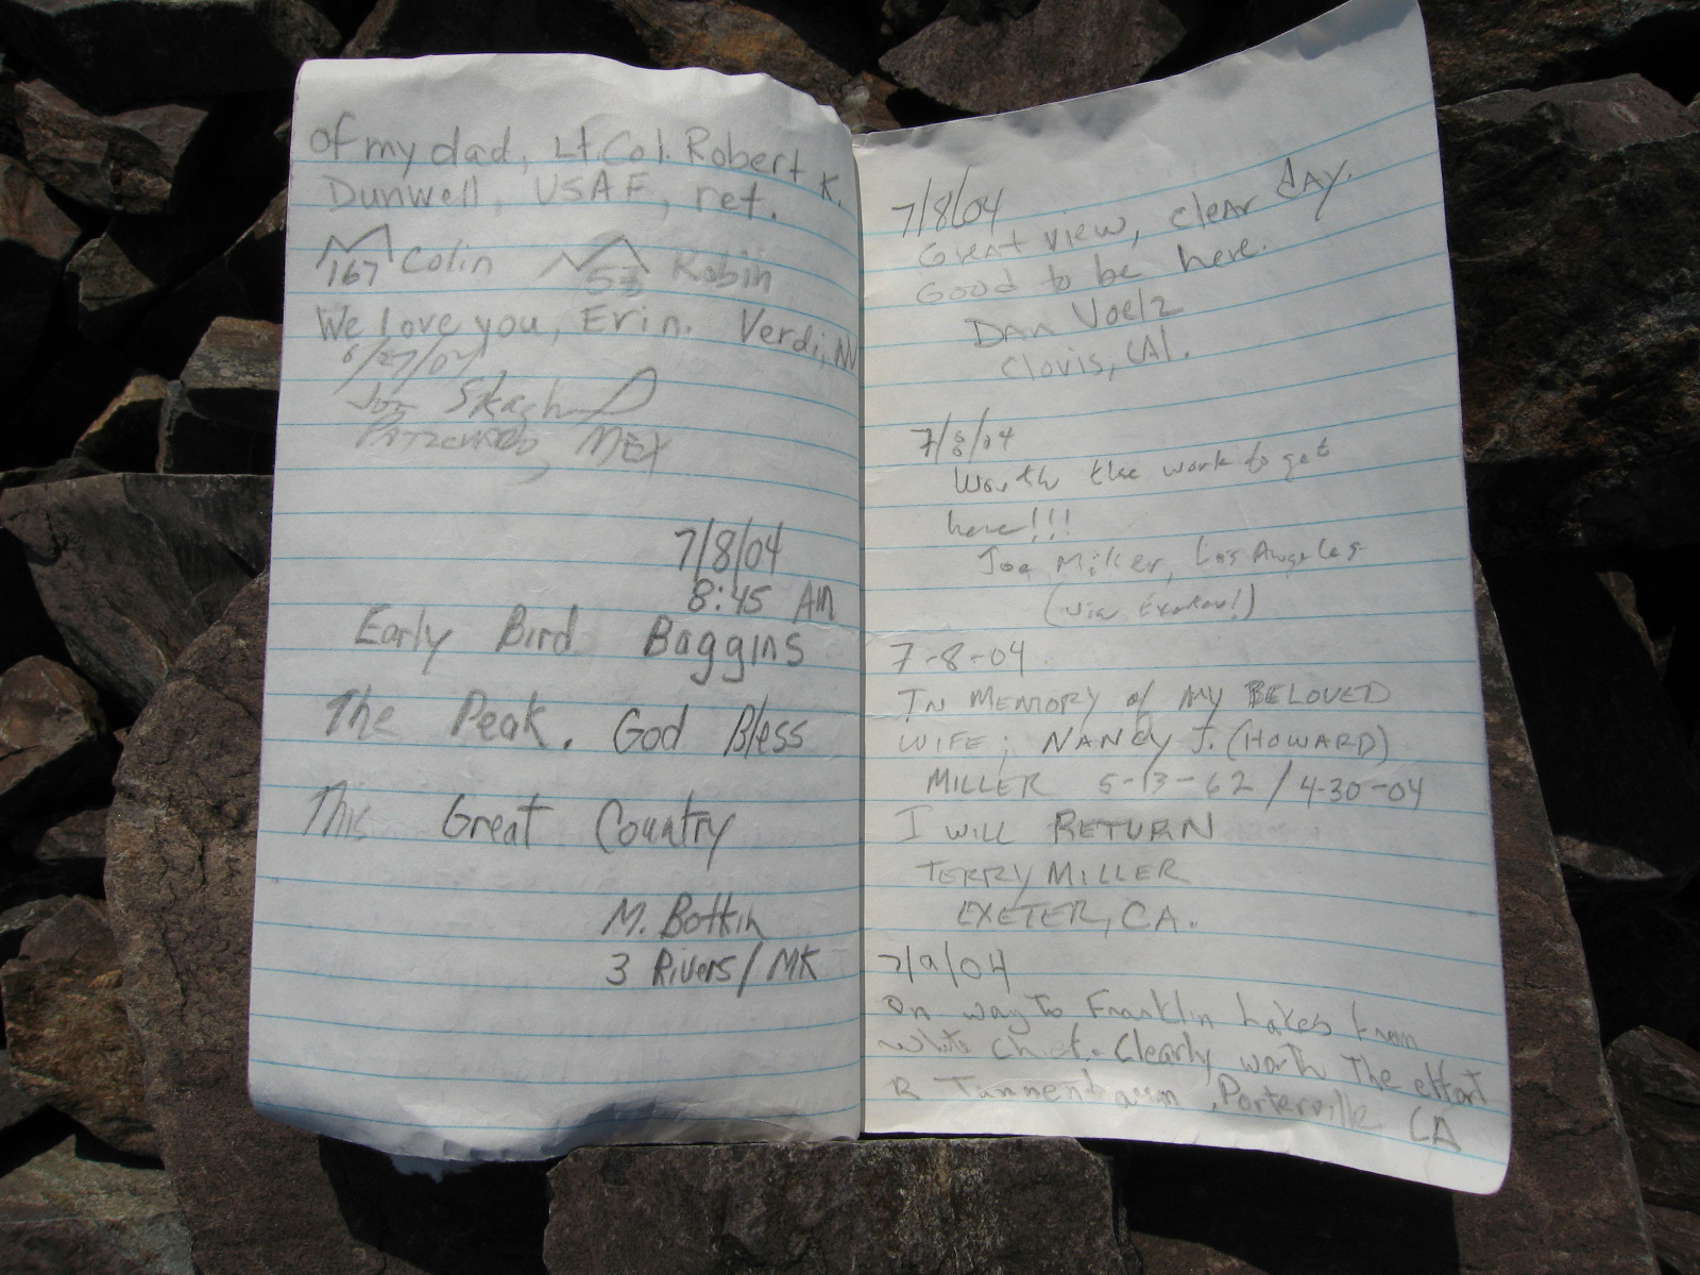 of my dad, Lt. Col. Robert K.
Dunwell, USAF, ret.
167 Colin 53 Robin
We love you, Erin. Verdi, NV
6/27/04
MEX
7/8/04
8:45 AM
Early Bird Baggins
The Peak. God Bless
This Great Country
M. Botkin
3 Rivers/MK
7/8/04
Great view, clear day.
Good to be here.
Dan Voelz
Clovis, CA.
7/8/04
Worth the work to get
here!!!
Joe Miller, Los Angeles
(via Exeter!)
7-8-04
IN MEMORY of MY BELOVED
WIFE; NANCY J. (HOWARD)
MILLER 5-13-62 / 4-30-04
I WILL RETURN
TERRY MILLER
EXETER, CA.
7/9/04
On way to Franklin Lakes from
White Chief. Clearly worth The effort
R Tannenbaum, Porterville CA